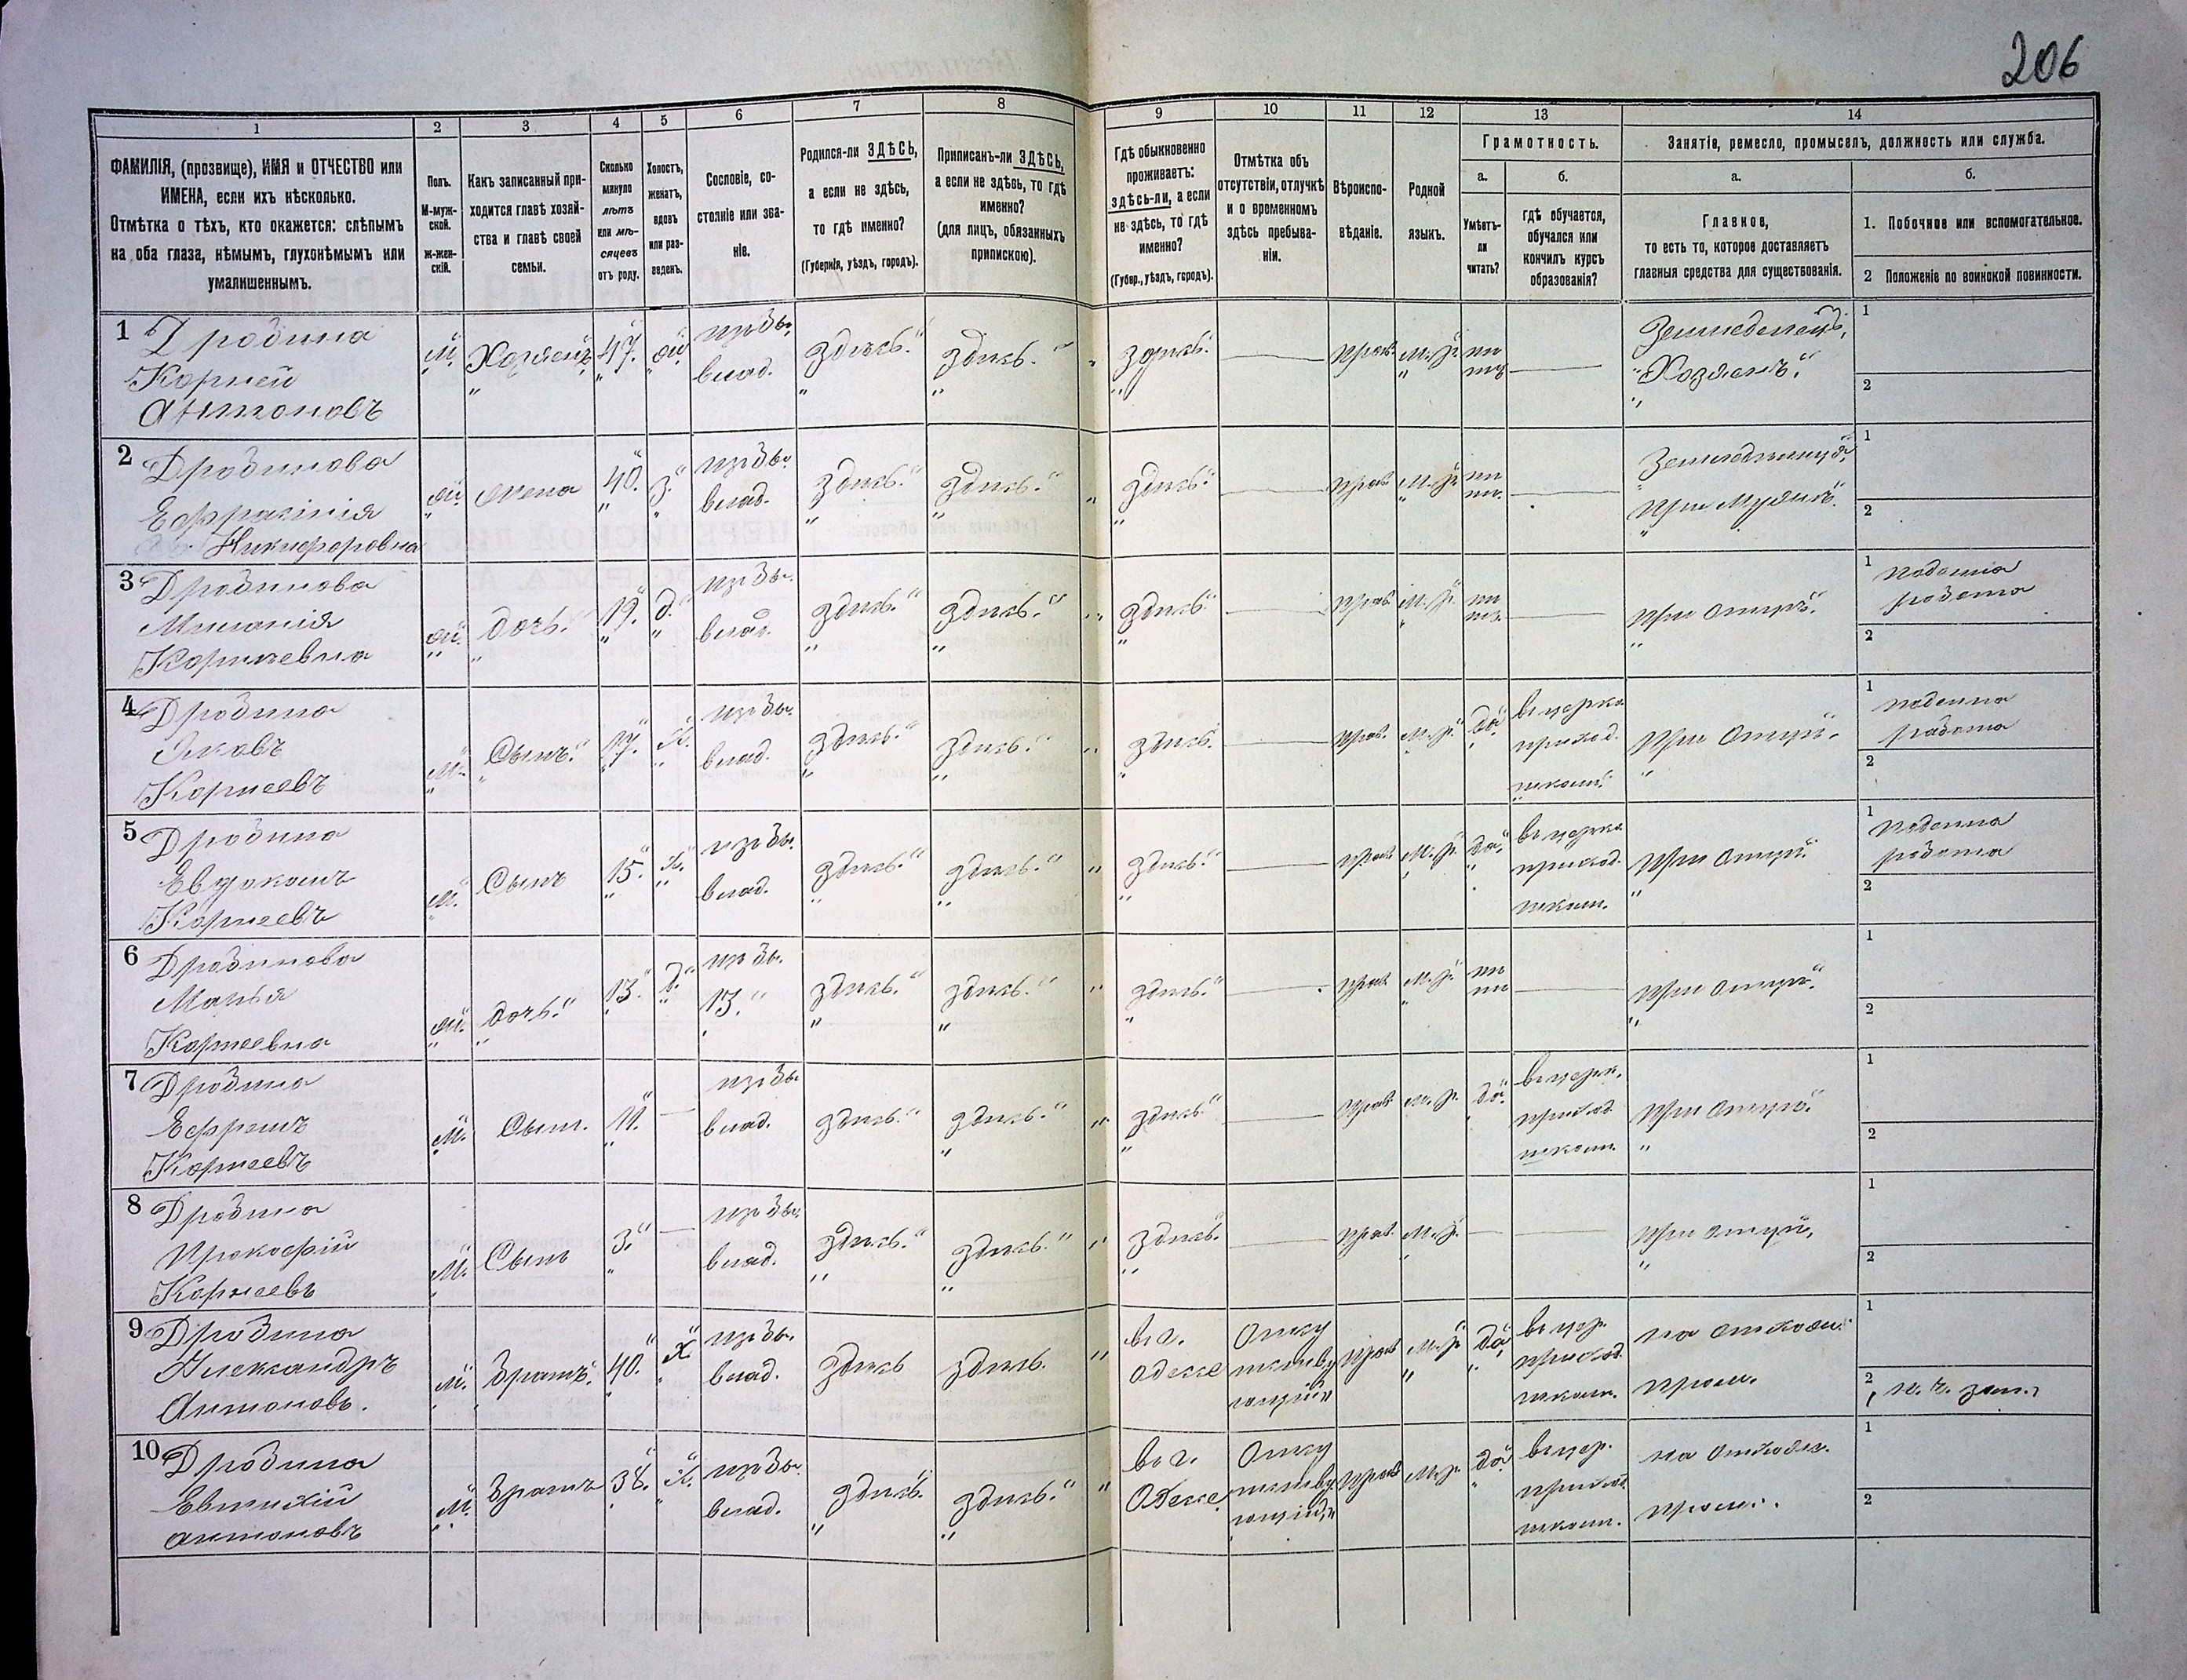 206
1 2 3 4 5 6 7 8 9 10 11 12 13 14
ФАМИЛІЯ, (прозвище), ИМЯ и ОТЧЕСТВО или
ИМЕНА, если ихъ нѣсколько.
Отмѣтка о тѣхъ, кто окажется: слѣпымъ
на оба глаза, нѣмымъ, глухонѣмымъ или
умалишеннымъ.
Полъ.
М-муж-
ской.
ж-жен-
скій.
Какъ записанный при-
ходится главѣ хозяй-
ства и главѣ своей
семьи.
Сколько
минуло
лѣтъ
или мѣ-
сяцевъ
отъ роду.
Холостъ,
женатъ,
вдовъ
или раз-
веденъ.
Сословіе, со-
стояніе или зва-
ніе.
Родился-ли ЗДѢСЬ,
а если не здѣсь,
то гдѣ именно?
(Губернія, уѣздъ, городъ).
Приписанъ-ли ЗДѢСЬ,
а если не здѣсь, то гдѣ
именно?
(для лицъ, обязанныхъ
припискою).
Гдѣ обыкновенно
проживаетъ:
здѣсь-ли, а если
не здѣсь, то гдѣ
именно?
(Губер., уѣздъ, городъ).
Отмѣтка объ
отсутствіи, отлучкѣ
и о временномъ
здѣсь пребыва-
ніи.
Вѣроиспо-
вѣданіе.
Родной
языкъ.
Грамотность.
а.
Умѣетъ-
ли
читать?
б.
гдѣ обучается,
обучался или
кончилъ курсъ
образованія?
Занятіе, ремесло, промыселъ, должность или служба.
а.
Главное,
то есть то, которое доставляетъ
главныя средства для существованія.
б.
1. Побочное или вспомогательное.
2 Положеніе по воинской повинности.
1 Дробина
Корней
Антоновъ
М. Хозяинъ 47. изъ бы.
влад. здѣсь. здѣсь. здѣсь. прав. м. р. нѣ
тъ
Земледелецъ,
Хозяинъ.
1
2
2 Дробинова
Ефрасинія
Никифоровна
жена 40. з. изъ бы.
влад. здѣсь. здѣсь. здѣсь. прав. м. р.
при мужѣ.
1
2
3 Дробинова
Миланія
Корнеевна
дочь. 19. д. изъ бы.
влад. здѣсь. здѣсь. здѣсь. прав. м. р.
при отцѣ.
1 поденна
работа
2
4 Дробина
Яковъ
Корнеевъ
М. Сынъ. 17. х. изъ бы.
влад. здѣсь. здѣсь. здѣсь. прав. м. р. да.
въ церко
приход.
школѣ.
при отцѣ.
1 поденна
работа
2
5 Дробина
Евдокимъ
Корнеевъ
М. Сынъ 15. х. изъ бы.
влад. здѣсь. здѣсь. здѣсь. прав. м. р. да.
въ церко
приход.
школ.
при отцѣ.
1 поденна
работа
2
6 Дробинова
Марья
Корнеевна
дочь. 13. д. изъ бы.
13. здѣсь. здѣсь. здѣсь. прав. м. р.
при отцѣ.
1
2
7 Дробина
Ефремъ
Корнеевъ
М. Сын. 11. изъ бы
влад. здѣсь. здѣсь. здѣсь. прав м. р. да.
въ церк.
приход.
школ.
при отцѣ.
1
2
8 Дробина
Прокофій
Корнеевъ
М. Сынъ 3. изъ бы.
влад. здѣсь. здѣсь. здѣсь. прав. м. р.
при отцѣ.
1
2
9 Дробина
Александръ
Антоновъ.
М. братъ. 40. х. изъ бы.
влад. здѣсь здѣсь.
въ г.
Одессе
прав м. р. да
въ цер.
приход.
школ.
на отхожи.
пром.
1
2
10 Дробина
Евтихій
антоновъ
М. братъ 38. х. изъ бы.
влад. здѣсь. здѣсь.
въ г.
Одессе
прав м. р. да
въ цер.
приход.
школ.
на отхожи.
пром.
1
2